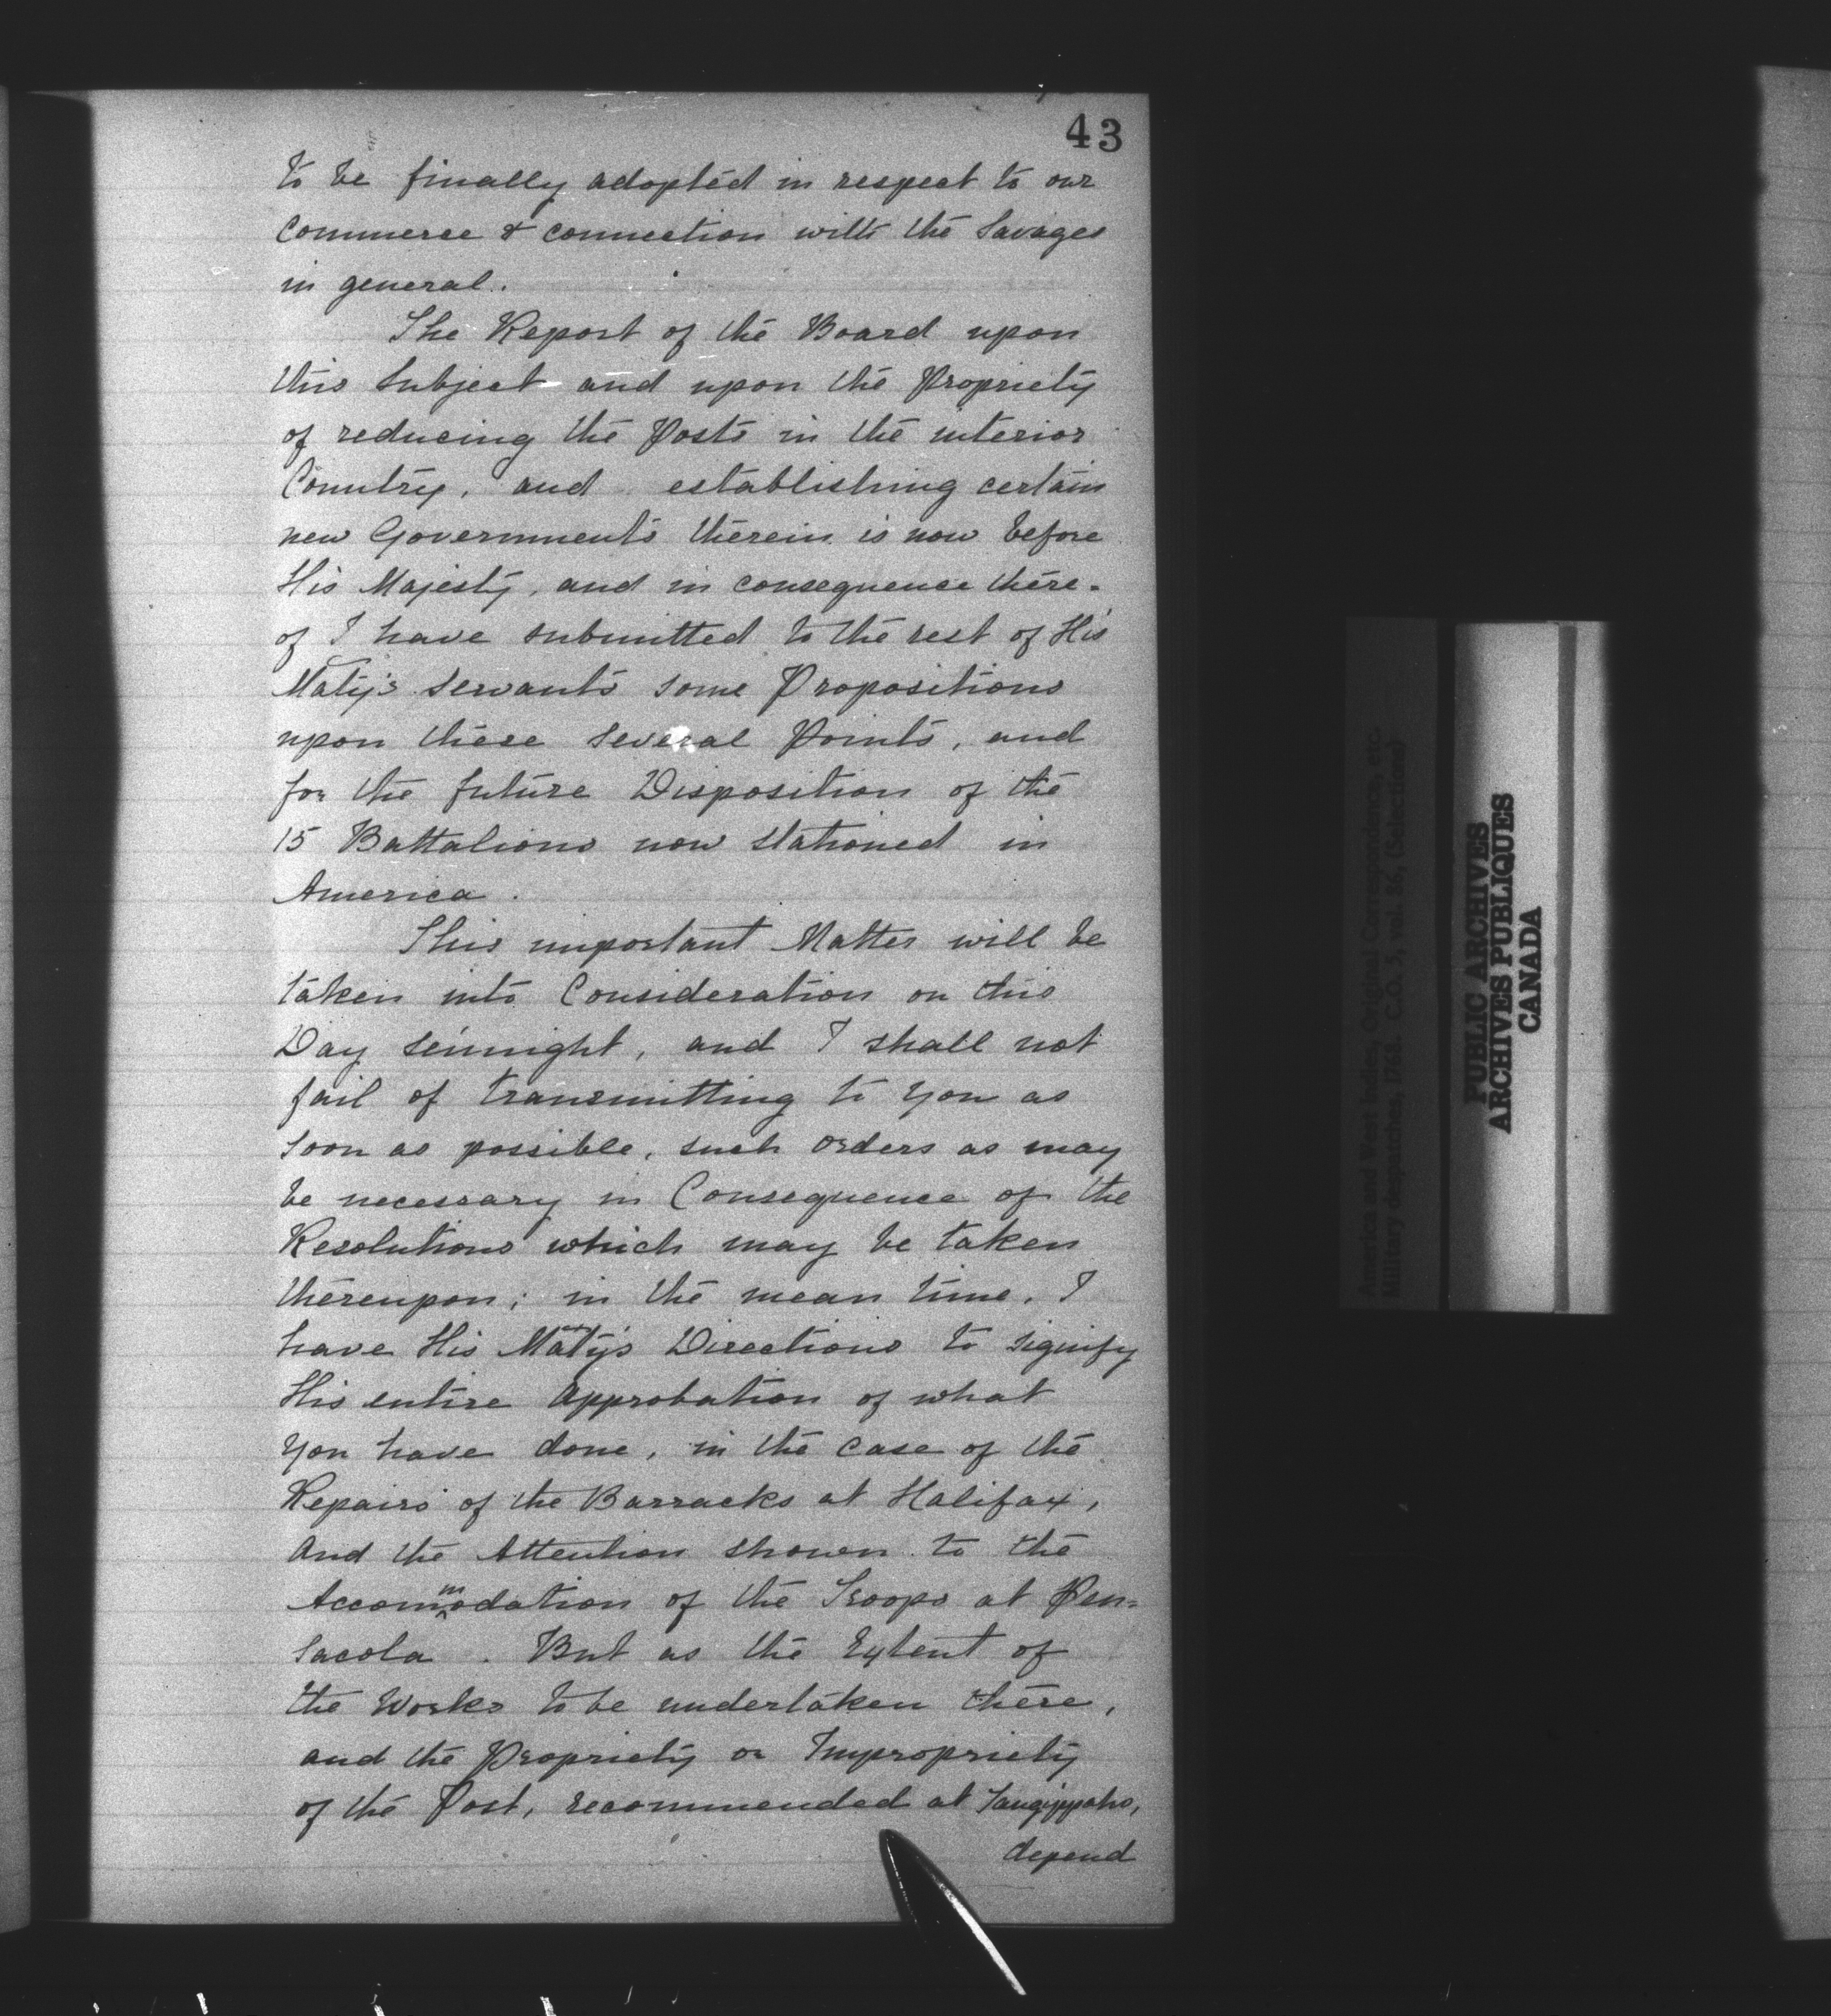 43
to be finally adopted in respect to our
Commerce & connection with the Savages
in general.
The Report of the Board upon
this Subject and upon the Propriety
of reducing the Posts in the interior
Country, and establishing certain
new Governments therein is now before
His Majesty, and in consequence there-
of I have submitted to the rest of His
Maty's servants some Propositions
upon these several Points, and
for the future Disposition of the
15 Battalions now stationed in
America.
This important Matter will be
taken into Consideration on this
Day sen'night, and I shall not
fail of transmitting to you as
soon as possible, such orders as may
be necessary in Consequence of the
Resolutions which may be taken
thereupon; in the mean time, I
have His Maty's Directions to signify
His entire Approbation of what
you have done, in the case of the
Repairs of the Barracks at Halifax,
And the Attention shown to the
Accommodation of the Troops at Pen=
sacola. But as the Extent of
the Works to be undertaken there,
and the Propriety or Impropriety
of the Post, recommended at
depend
America and West Indies, Original Correspondence, etc.
Military despatches, 1768. C.O. 5, vol. 86, (Selections)
PUBLIC ARCHIVES
ARCHIVES PUBLIQUES
CANADA